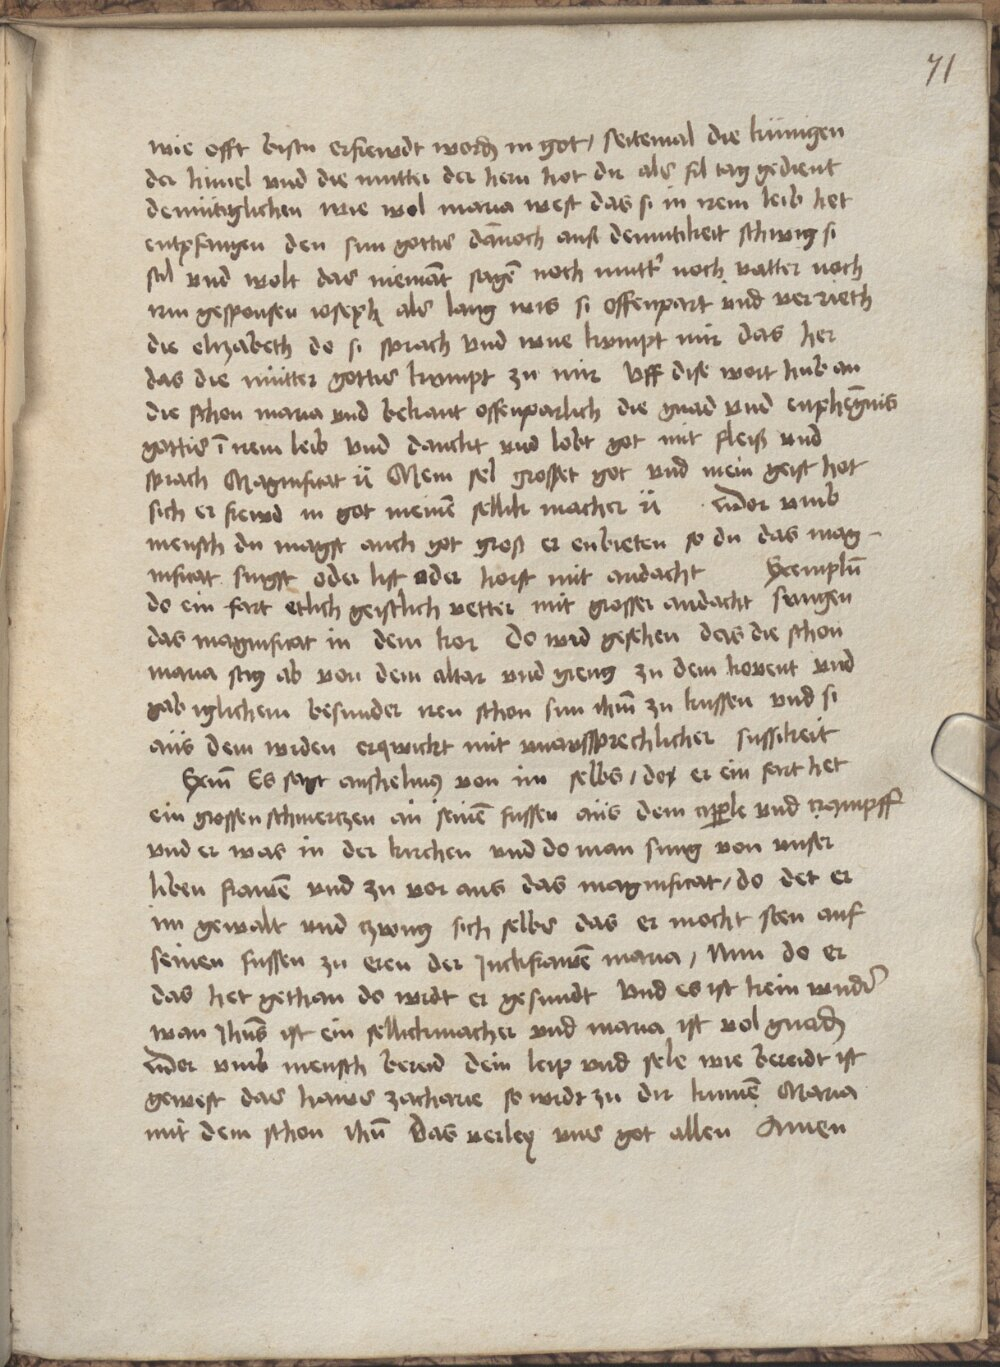 71
wie offt bistu erfrewdt word in got / seitemal die künigen
der himel vnd die mutter der hern hot dir als fil tag gedient
demütiglichen wie wol maria west das si in irem leib het
entpfangen den sun gottis dānoch auß demutikeit schwig si
stil vnd wolt das niemāt sagē noch mutt' noch vatter noch
irm gesponsen ioseph als lang wis si offenpart vnd verrieth
die elizabeth do si sprach vnd wue kumpt mir das her
das die mütter gottis kumpt zu mir Vff dise wort hub an
die schon maria vnd bekant offenparlich die gnad vnd enphēgnis
gottis ī irem leib vnd danckt vnd lobt got mit fleiß vnd
sprach Magnificat ü Mein sel grosset got vnd mein geist hot
sich er frewd in got meinē sellik macher ü dor vmb
mensch du magst auch got groß er enbieten so du das mag-
nificat singst oder list oder horst mit andacht Exemplū
do ein fart etlich geistlich vetter mit grosser andacht sungen
das magnificat in dem kor do wrd gesehen das die schon
maria stig ab von dem altar vnd gieng zu dem kovent vnd
gab iglichem besunder iren schon sun ihm̄ zu kussen vnd si
aüs dem wrden erqwickt mit vnavssprechlicher sussikeit
Exm̄ Es sagt anshelmus von im selbs / do er ein fart het
ein grossen schmertzen an seinē fussen aüs dem vnd crampff
vnd er was in der kirchen vnd do man sung von vnser
liben frawē vnd zu vor aus das magnificat / do det er
im gewalt vnd zwng sich selbs das er mocht sten auf
seinen fussen zu eren der Junckfrawē maria / Nun do er
das het gethan do wrdt er gesundt Vnd es ist kein wnder
wan Jhūs ist ein sellickmacher vnd maria ist vol gnad
dor vmb mensch bereid dein leip vnd sele wie bereidt ist
gewest das haws zacharie so wrdt zu dir kumē Maria
mit dem schon ihū Das verley vns got allen Amen